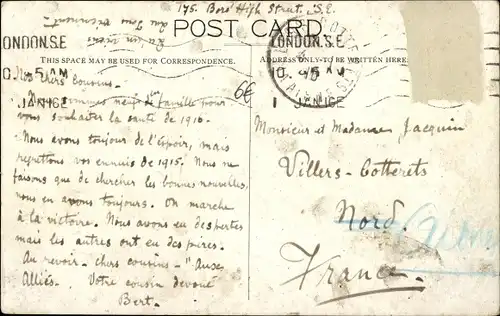 175. Boro' High Street. S.E.
POST CARD
LONDON.S.E
5 AM
JAN 16
THIS SPACE MAY BE USED FOR CORRESPONDENCE.
ADDRESS ONLY TO BE WRITTEN HERE.
LONDON.S.E
JAN 16
Nos chers Cousins.
Nous sommes neuf de famille pour
vous souhaiter la santé de 1916.
Nous avons toujours de l'espoir, mais
regrettons vos ennuis de 1915. Nous ne
faisons que de chercher les bonnes nouvelles,
nous en avons toujours. On marche
à la victoire. Nous avons eu des pertes
mais les autres ont eu des pires.
Au revoir - chers cousins - "Aux
Alliés. Votre cousin dévoué
Bert.
6€
Monsieur et Madame Jacquin
Villers-Cotterets
Nord.
France.